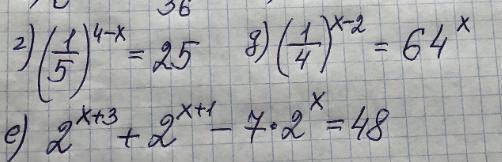 36
г) (1/5)^{4-x} = 25 д) (1/4)^{x-2} = 64^x
е) 2^{x+3} + 2^{x+1} - 7·2^x = 48